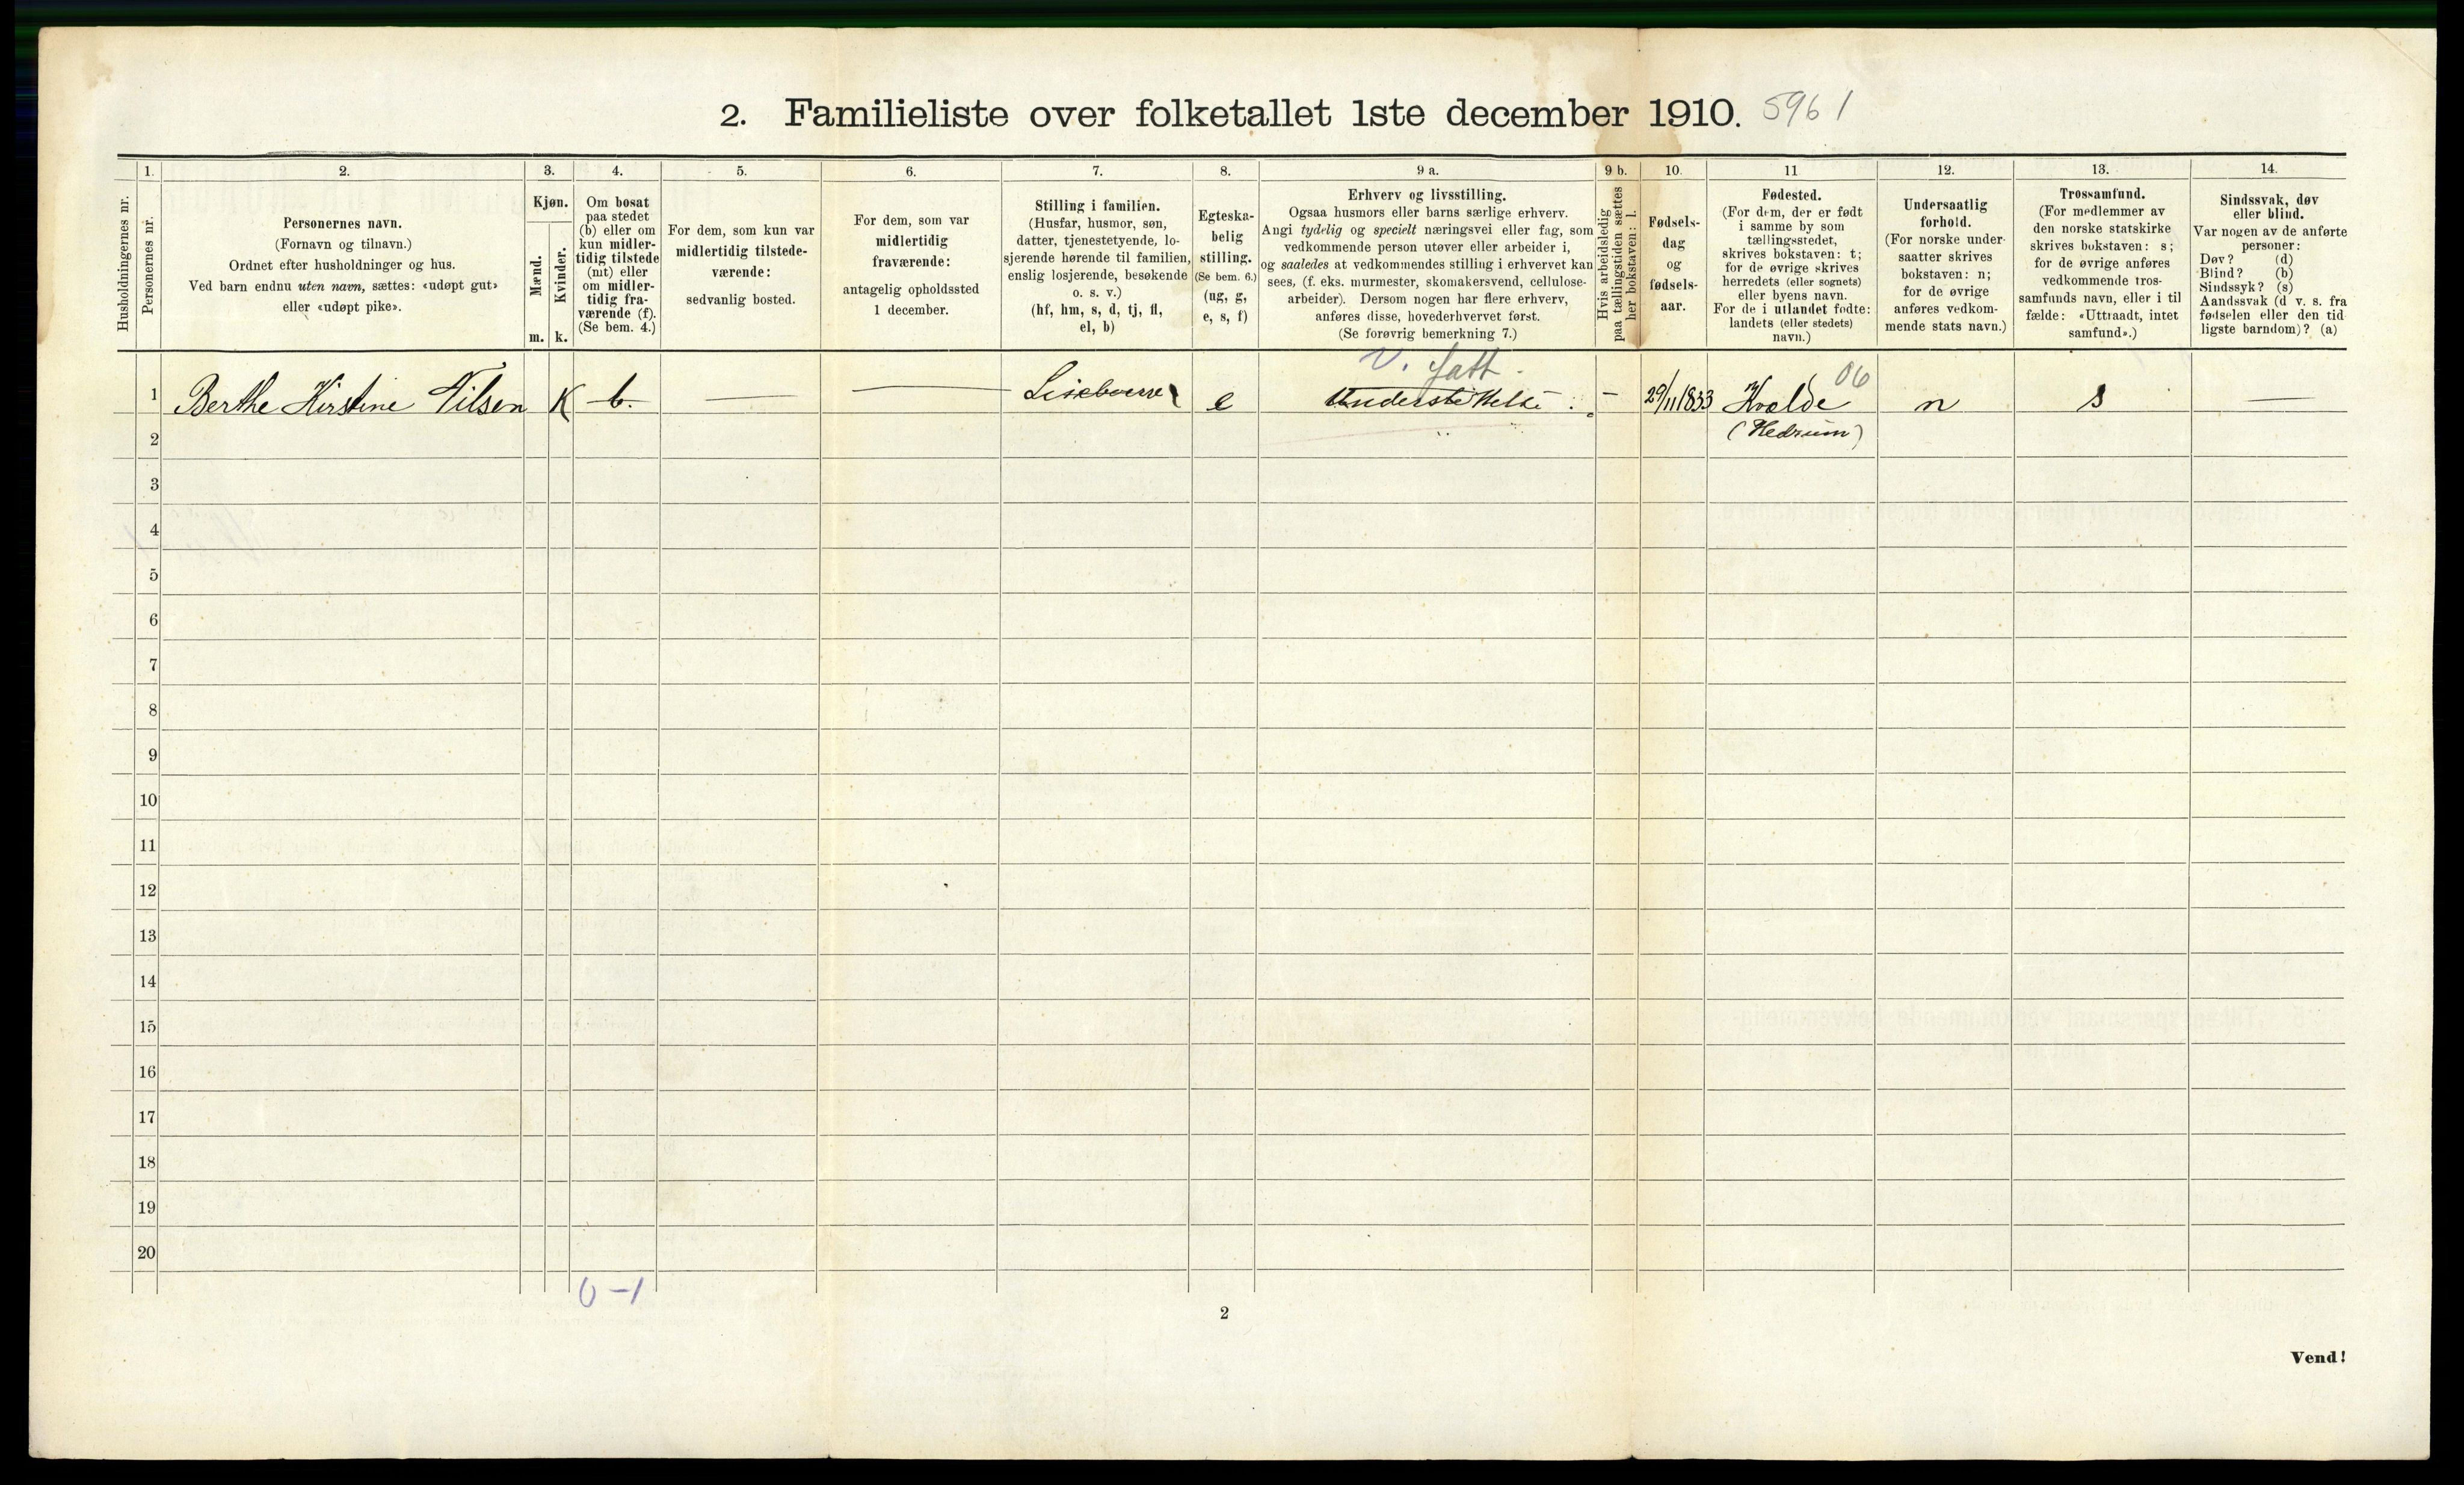 2. Familieliste over folketallet 1ste december 1910. 5961
Husholdningernes nr.
1.
Personernes nr.
2.
Personernes navn.
(Fornavn og tilnavn.)
Ordnet efter husholdninger og hus.
Ved barn endnu uten navn, sættes: «udøpt gut»
eller «udøpt pike».
3.
Kjøn.
Mænd.
Kvinder.
m. k.
4.
Om bosat
paa stedet
(b) eller om
kun midler-
tidig tilstede
(mt) eller
om midler-
tidig fra-
værende (f).
(Se bem. 4.)
5.
For dem, som kun var
midlertidig tilstede-
værende:
sedvanlig bosted.
6.
For dem, som var
midlertidig
fraværende:
antagelig opholdssted
1 december.
7.
Stilling i familien.
(Husfar, husmor, søn,
datter, tjenestetyende, lo-
sjerende hørende til familien,
enslig losjerende, besøkende
o. s. v.)
(hf, hm, s, d, tj, fl,
el, b)
8.
Egteska-
belig
stilling.
(Se bem. 6.)
(ug, g,
e, s, f)
9 a.
Erhverv og livsstilling.
Ogsaa husmors eller barns særlige erhverv.
Angi tydelig og specielt næringsvei eller fag, som
vedkommende person utøver eller arbeider i,
og saaledes at vedkommendes stilling i erhvervet kan
sees, (f. eks. murmester, skomakersvend, cellulose-
arbeider). Dersom nogen har flere erhverv,
anføres disse, hovederhvervet først.
(Se forøvrig bemerkning 7.)
9 b.
Hvis arbeidsledig
paa tællingstiden sættes
her bokstaven: l.
10.
Fødsels-
dag
og
fødsels-
aar.
11
Fødested.
(For dem, der er født
i samme by som
tællingsstedet,
skrives bokstaven: t;
for de øvrige skrives
herredets (eller sognets)
eller byens navn.
For de i utlandet fødte:
landets (eller stedets)
navn.)
12.
Undersaatlig
forhold.
(For norske under-
saatter skrives
bokstaven: n;
for de øvrige
anføres vedkom-
mende stats navn.)
13.
Trossamfund.
(For medlemmer av
den norske statskirke
skrives bokstaven: s;
for de øvrige anføres
vedkommende tros-
samfunds navn, eller i til
fælde: «Uttraadt, intet
samfund».)
14.
Sindssvak, døv
eller blind.
Var nogen av de anførte
personer:
Døv? (d)
Blind? (b)
Sindssyk? (s)
Aandssvak (d v. s. fra
fødselen eller den tid
ligste barndom)? (a)
fatt.
06
1 Berthe Kirstine Nilsen K b. — — e – 29/11 1833 Kvelde n s —
(Hedrum)
2
3
4
5
6
7
8
9
10
11
12
13
14
15
16
17
18
19
20
0-1
2
Vend!